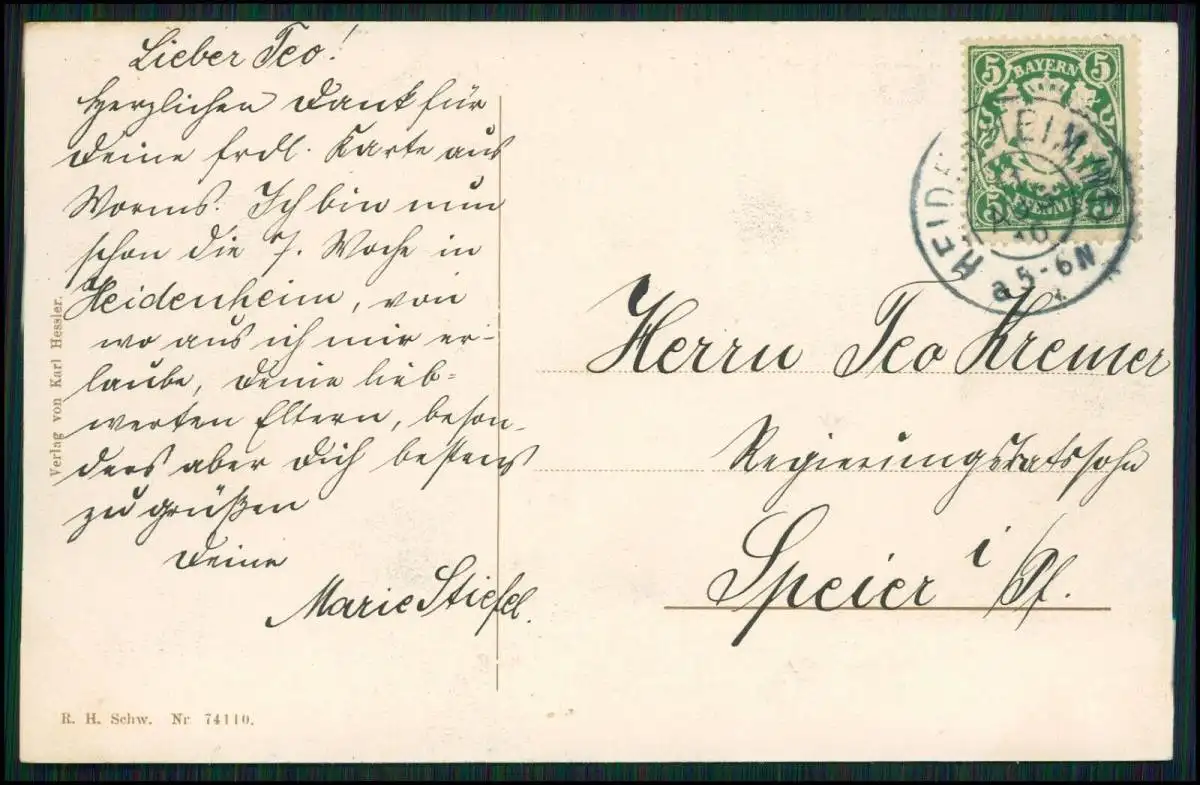 Lieber Teo!
Herzlichen Dank für
Deine frdl. Karte aus
Worms. Ich bin nun
schon die 7. Woche in
Heidenheim, von
wo aus ich mir er-
laube, Deine lieb-
werten Eltern, beson-
ders aber Dich bestens
zu grüßen
Deine
Marie Stiefel.
Verlag von Karl Hessler.
R. H. Schw. Nr 74110.
5 BAYERN 5
5 PFENNIG
HEIDENHEIM
5-6N
Herrn Teo Kremer
Regierungsratssohn
Speier i/Pf.